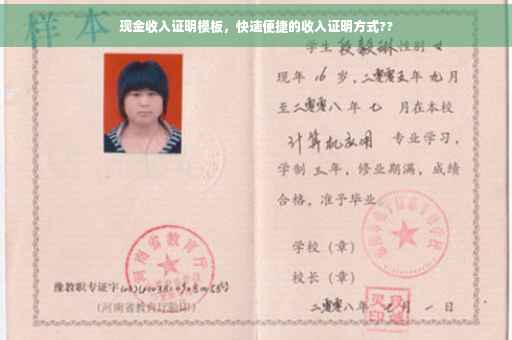 现金收入证明模板，快速便捷的收入证明方式??
样本
学生段毅琳性别女
现年16岁，二零零五年九月
至二零零八年七月在本校
计算机应用 专业学习，
学制三年，修业期满，成绩
合格，准予毕业。
学校（章）
校长（章）
二零零八年 月一日
河南省教育厅
豫教职专证字
（河南省教育厅验印）